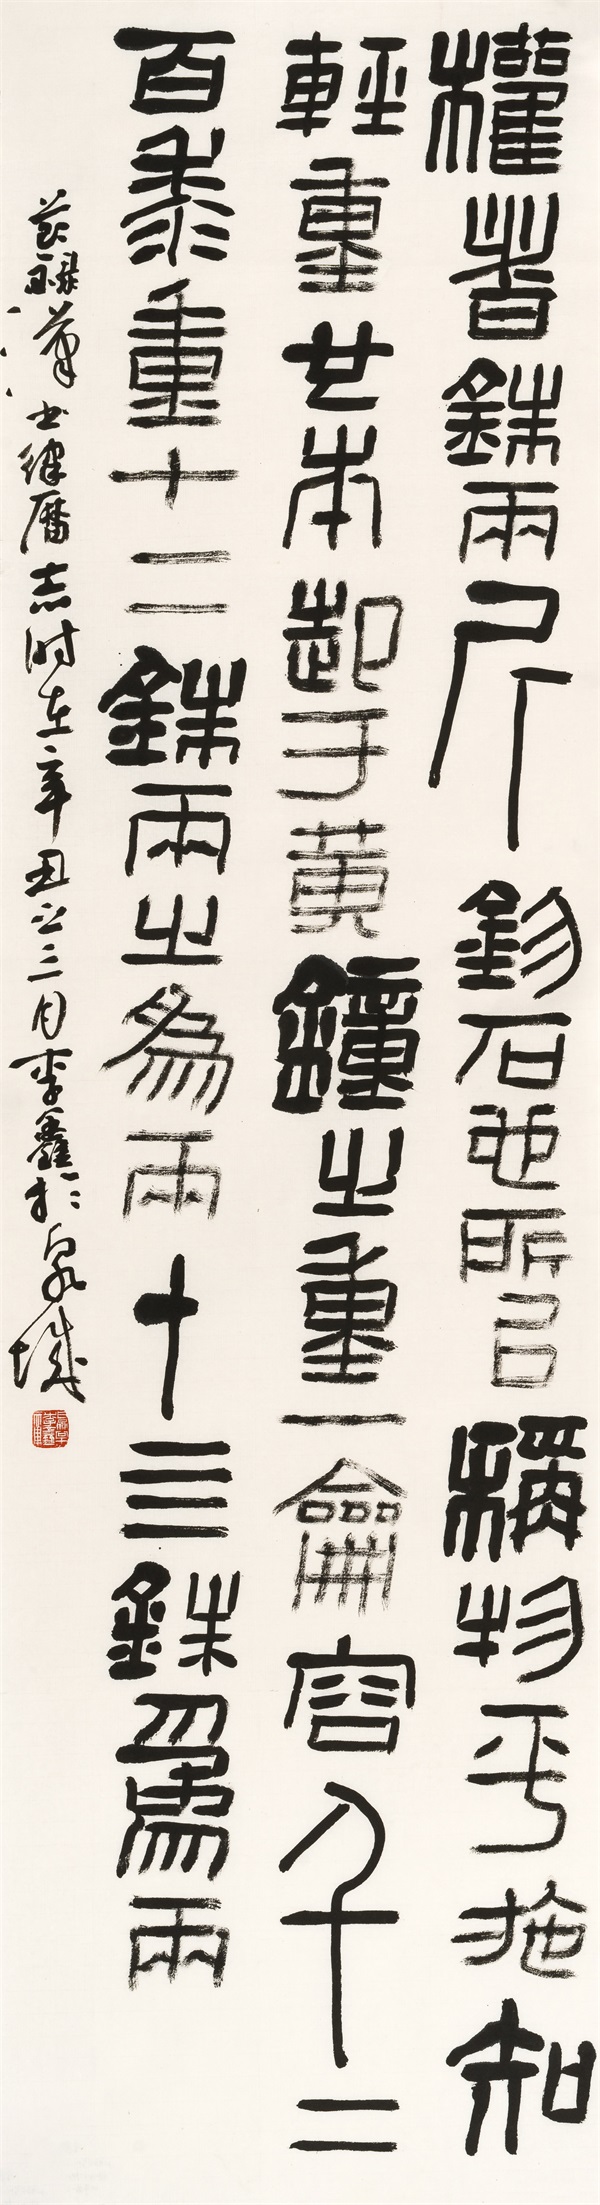 權者銖兩斤鈞石也所以稱物平施知
輕重也本起于黃鐘之重一龠容千二
百黍重十二銖兩之為兩十亖銖為兩
节録漢书律曆志时在辛丑之三月李鑫於泉城